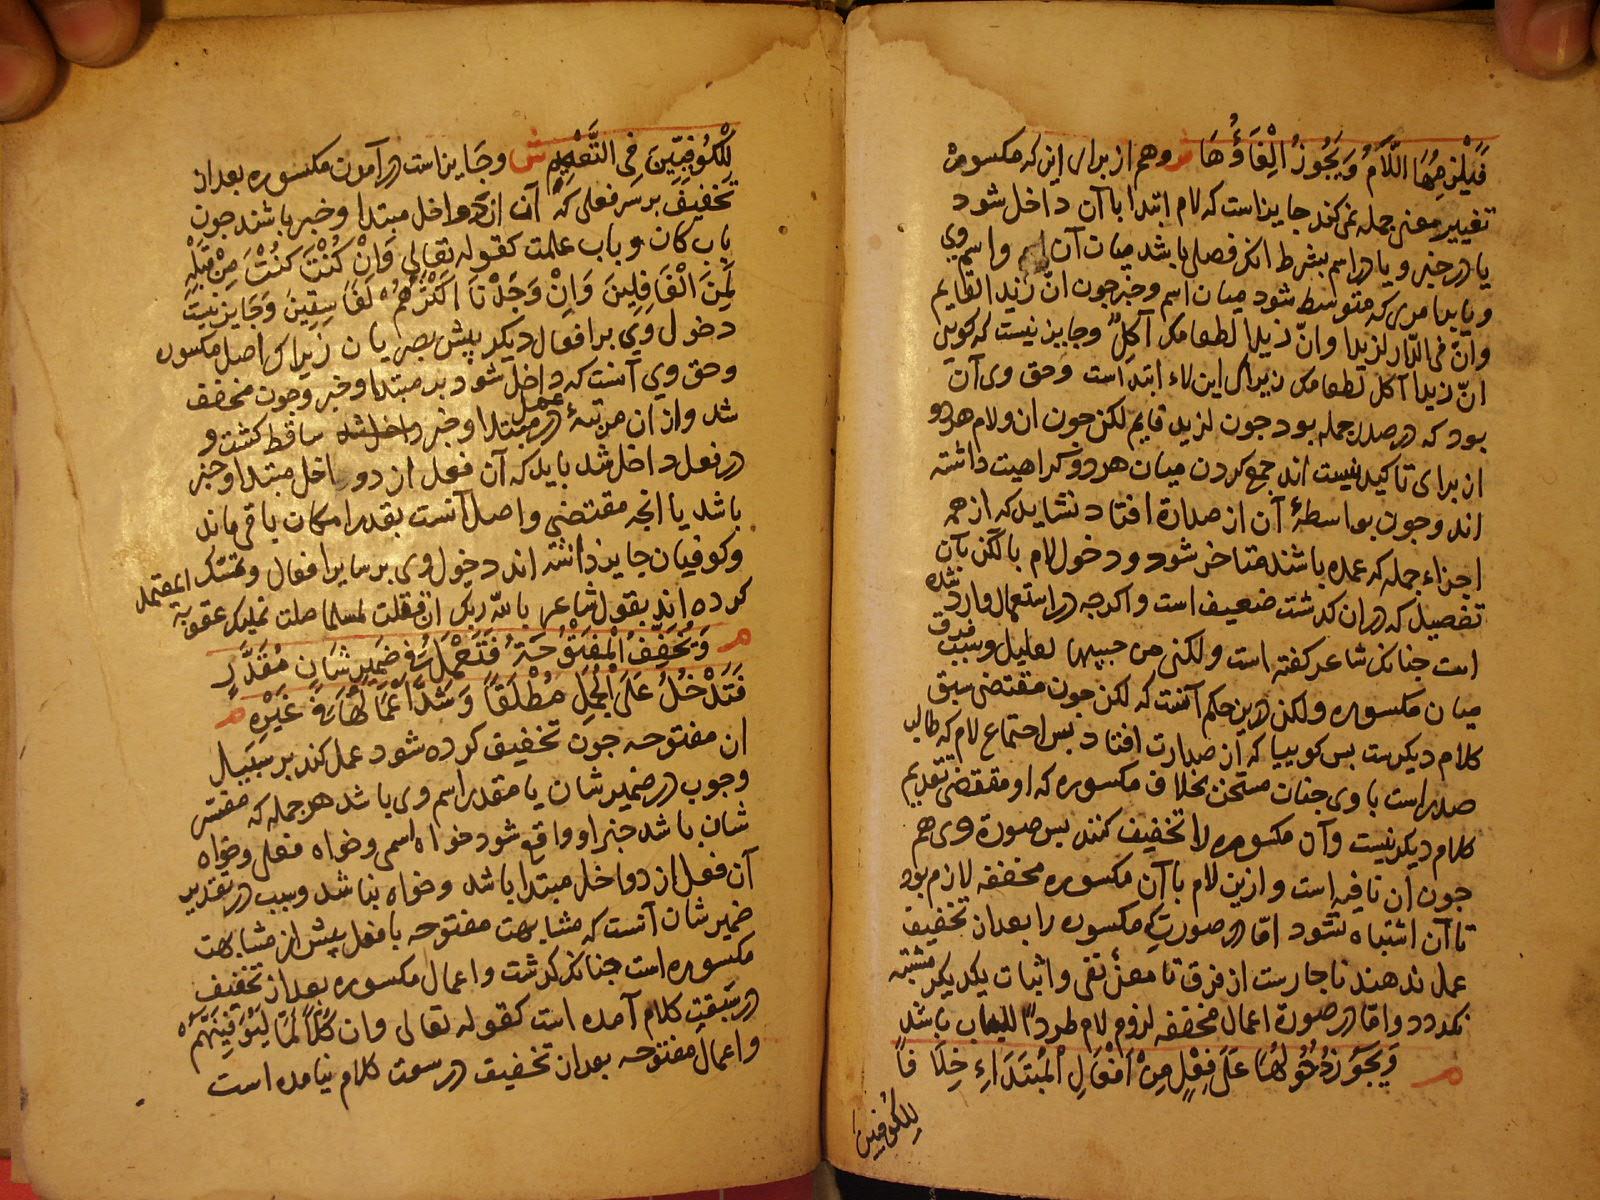 فَيَلْزمُهَا اللَّامُ وَيَجُوزُ الْغَاؤُهَا ش وهم از برای این که مکسوره
تغییر معنی جمله نمی کند جایز است که لام ابتدا با آن داخل شود
یا در خبر و یا در اسم بشرط انک فصلی باشد میان آن و اسم وی
و یا بدا مری که متوسط شود میان اسم و خبر جون انّ زیدا لقایم
وانّ فی الدّار لزیدا وانّ زیدا لطعامک آکِلٌ وجایز نیست که کویی
انّ زیدا آکل لطعامک زیرا ک این لاء ابتداست وحق وی آن
بود که در صدر جمله بود جون لزید قایم لکن جون ان ولام هر دو
از برای تاکید نسبت اند جمع کردن میان هر دو کراهیت داشته
اند وجون بواسطهٔ آن از صدارة افتاد نشاید که از همه
اجزاء جمله که عمده باشند متاخر شود ودخول لام با لکن بآن
تفصیل که در ان کدشت ضعیف است واکرجه در استعمال وارد شده
است جنانک شاعر کفته است ولکنی من حبیها لعلیل وسبب فرق
میان مکسوره ولکن درین حکم آنست که لکن جون مقتضی سبق
کلام دیکرست بس کوییا که از صدارت افتاد بس اجتماع لام که طالب
صدر است با وی جنان مستحسن بخلاف مکسوره که او مقتضی تقدیم
کلام دیکر نیست وآن مکسوره را تخفیف کنند بس صورة وی هم
جون ان نافیه است وازین لام با آن مکسوره مخففه لازم بود
تا آن اشتباه نشود امّا در صورتی که مکسوره را بعد از تخفیف
عمل ندهند ناجارست از فرق تا معنی نفی واثبات یکدیکر مشتبه
نکردد وامّا در صورة اعمال مخففه لزوم لام طردا للباب باشد
م وَيَجُوزُ دُخُولُهَا عَلَى فِعْلٍ مِنْ اَفْعَالِ الْمُبْتَدَاءِ خِلَافًا
للکوفیین
لِلْكُوفِيّينَ فِي التَّعْمِيمِ ش وجَایز است در آمدن مکسوره بعد از
تخفیف بر سر فعلی که آن از دواخل مبتدا وخبر باشند جون
باب کان وباب علمت کقوله تعالی وَاِنْ كُنْتَ مِنْ قَبْلِهِ
لَمِنَ الْغَافِلِينَ وَاِنْ وَجَدْنَا اَكْثَرَهُمْ لَفَاسِقِينَ وَجَایز نیست
دخول وی بر افعال دیکر پیش بصریان زیرا ک اصل مکسوره
وحق وی آنست که داخل شود بر مبتدا وخبر وجون مخفف
شد واز ان مرتبهٔ عمل در مبتدا وخبر داخل شد ساقط کشت و
در فعل داخل شد باید که آن فعل از دواخل مبتدا وخبر
باشد یا انجه مقتضی واصل آنست بقدر امکان باقی ماند
وکوفیان جایز داشته اند دخول وی بر سایر افعال وتمسّک
کرده اند بقول شاعر بالله ربک ان قتلت لمسلما حلت علیک عقوبة المتعمد
م وَتُخَفَّفُ الْمَفْتُوحَةُ فَتَعْمَلُ فِي ضَمِيرِ شَانٍ مُقَدَّرٍ
فَتَدْخُلُ عَلَى الْجُمَلِ مُطْلَقًا وَشَذَّ اِعْمَالُهَا فِي غَيْرِهِ م
ان مفتوحه جون تخفیق کرده شود عمل کند بر سبیل
وجوب در ضمیر شان یا مقدر اسم وی باشد هر جمله که مفسّر
شان باشد خبر او واقع شود خواه اسمی وخواه فعلی وخواه
آن فعل از دواخل مبتدا باشد وخواه نباشد وسبب در تقدیر
ضمیر شان آنست که مشابهت مفتوحه با فعل بیش از مشابهت
مکسوره است جنانک کدشت واعمال مکسوره بعد از تخفیف
در سَبقتِ کلام آمده است کقوله تعالی وان كُلًّا لَمَّا لَيُوَفِّيَنَّهُمْ
واعمال مفتوحه بعد از تخفیف در سعت کلام نیامده است